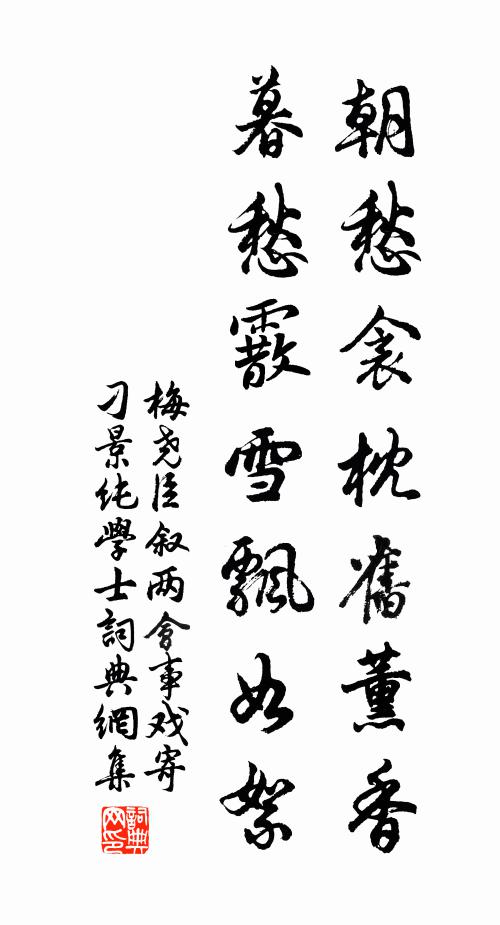 朝愁衾枕舊薰香
暮愁霰雪飄如絮
梅尧臣叙两會事戏寄
刁景纯學士詞典網集
詞典网印